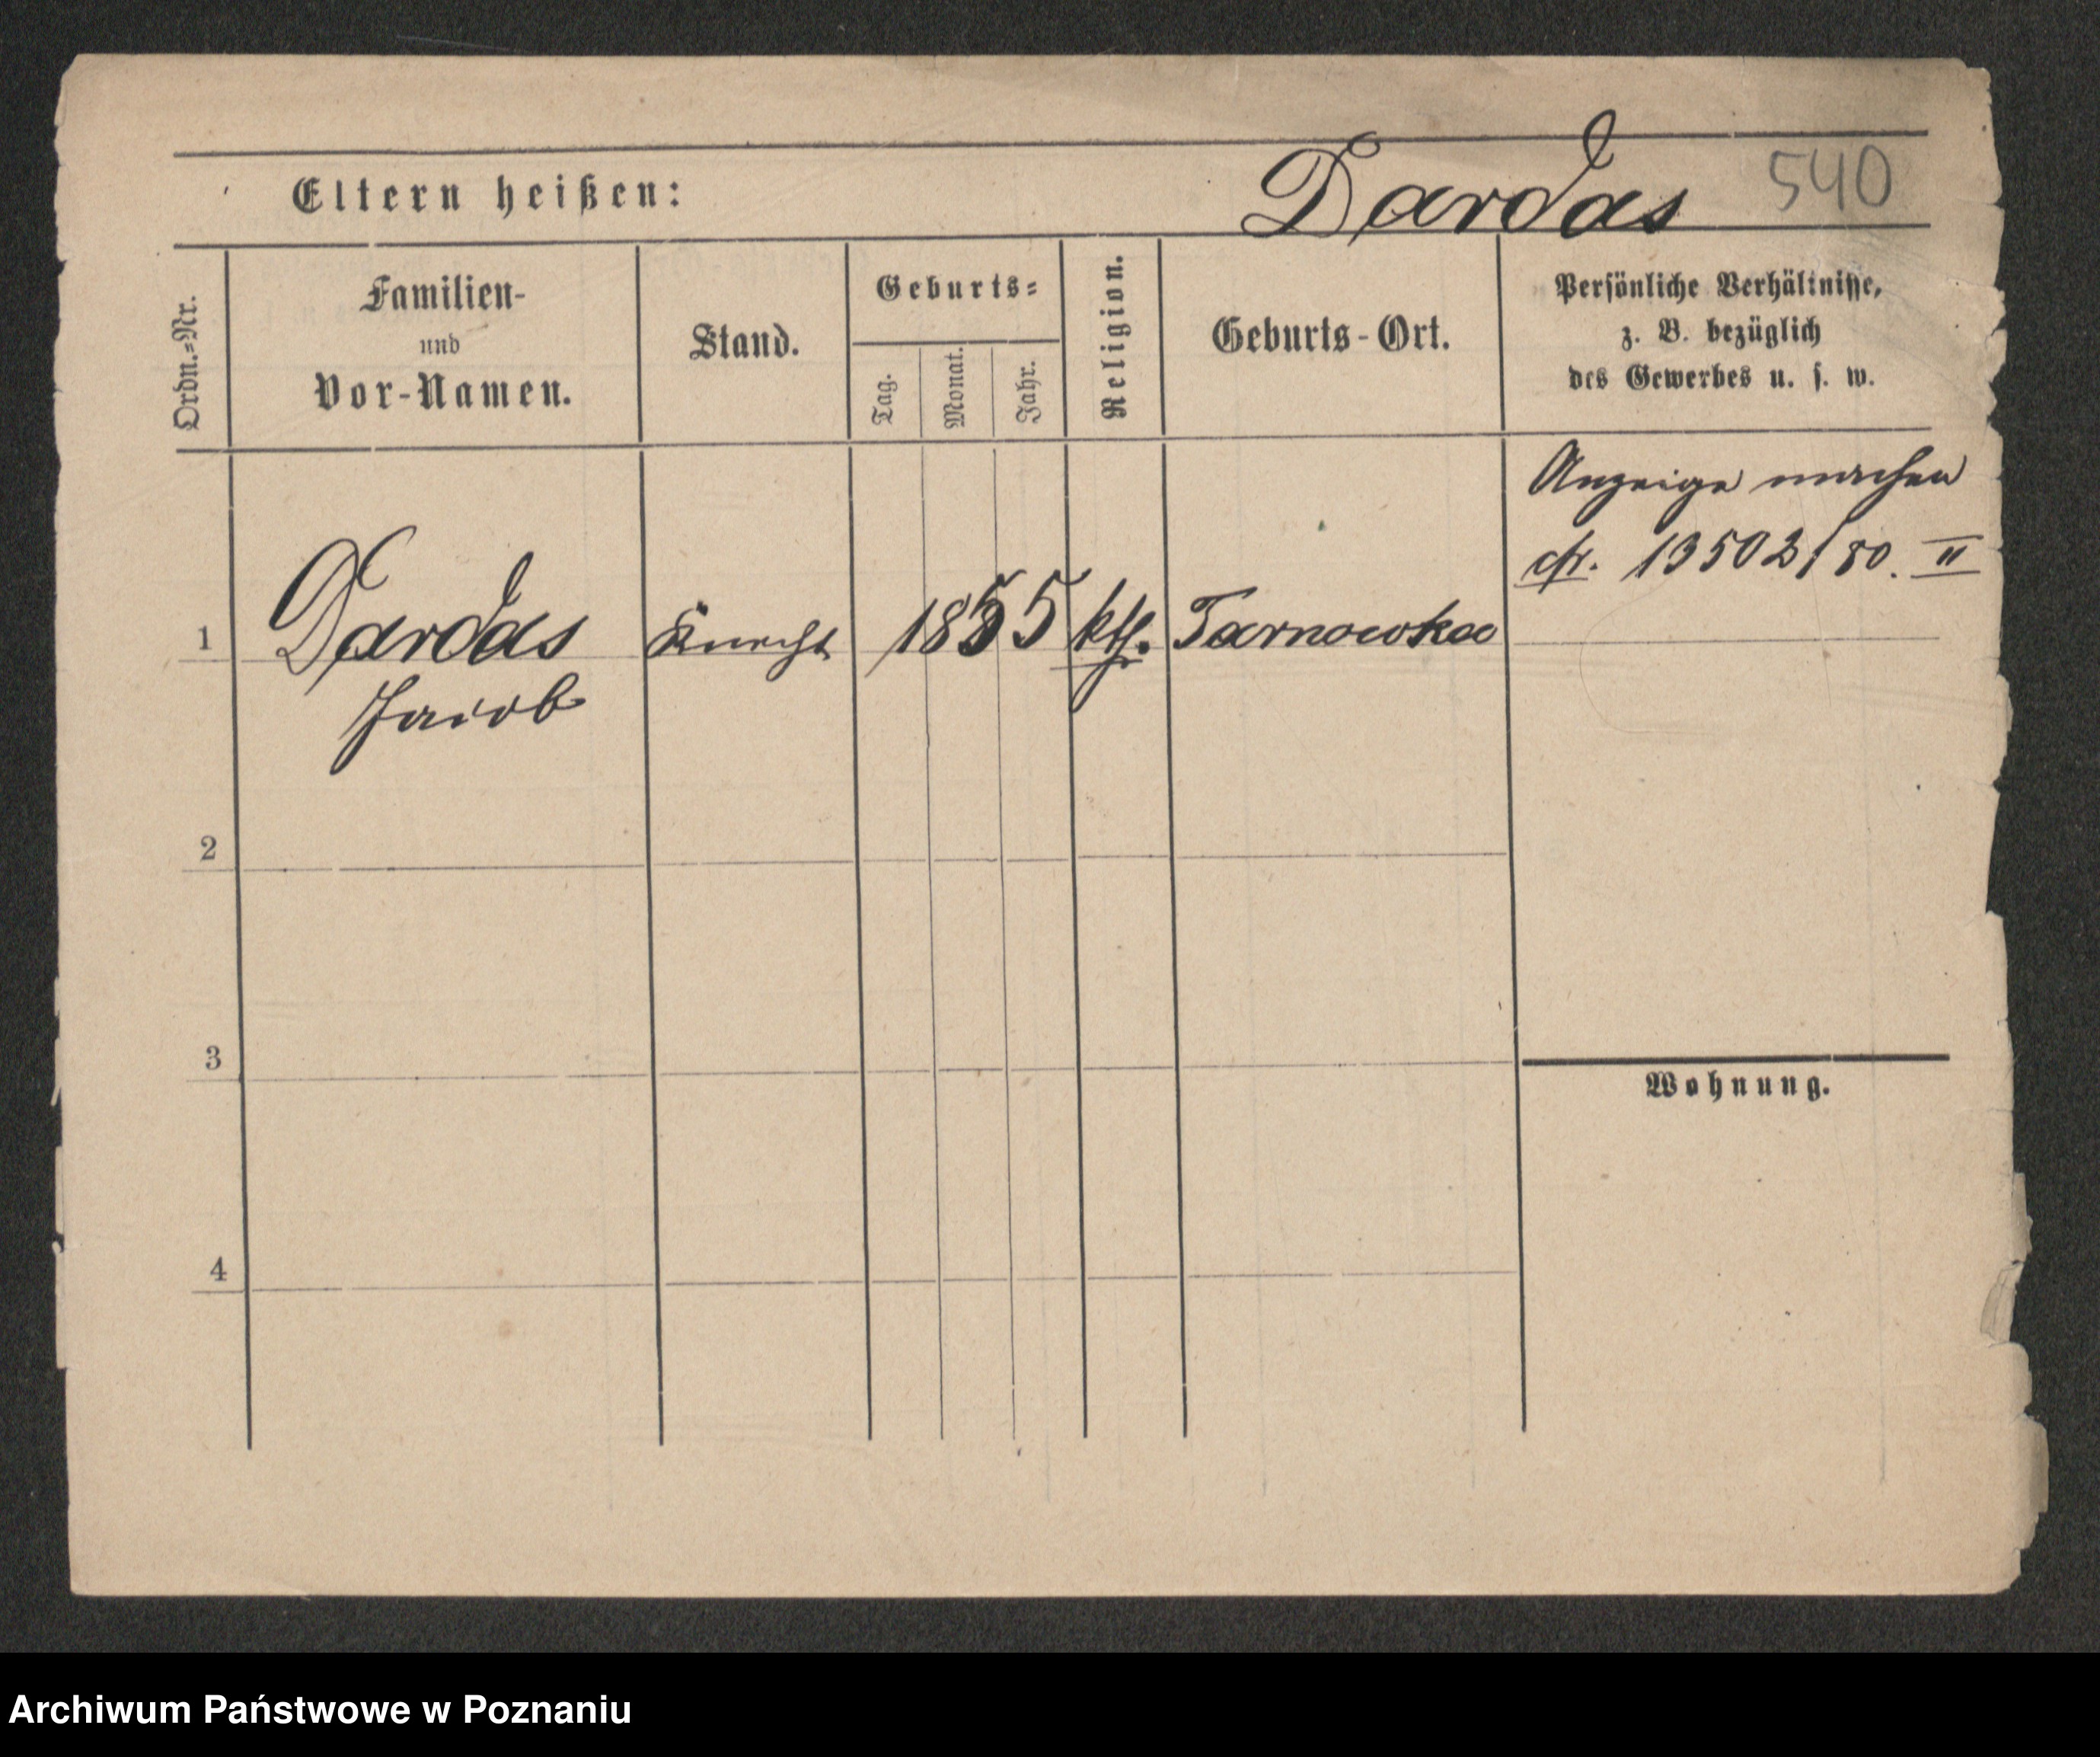 Dardas 540
Eltern heißen:
Ordn.=Nr.
Familien-
und
Vor-Namen.
Stand.
Geburts=
Tag.
Monat.
Jahr.
Religion.
Geburts-Ort.
Persönliche Verhältnisse,
z. B. bezüglich
des Gewerbes u. s. w.
Anzeige machen
cfr. 13502/80. II
1 Dardas Knecht 1855 kth. Tarnowka
Jacob
2
3
Wohnung.
4
Archiwum Państwowe w Poznaniu